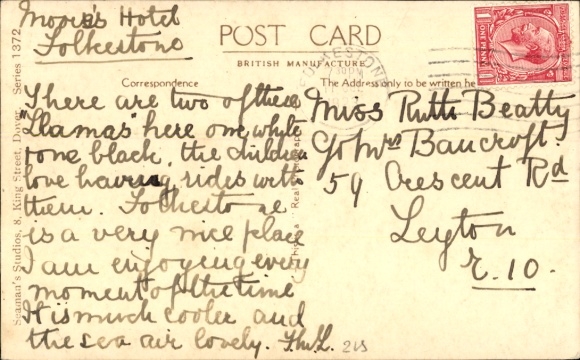 Moore's Hotel
Folkestone
POST CARD
BRITISH MANUFACTURE
Correspondence
The Address only to be written here
FOLKESTONE
ONE PENNY
There are two of these
"Llamas" here one white
& one black, the children
love having rides with
them. Folkestone
is a very nice place
I am enjoying every
moment of the time
It is much cooler and
the sea air lovely.
213
Miss Ruth Beatty
C/o Mrs Bancroft.
59 Crescent Rd
Leyton
E. 10.
Seaman's Studios, 8, King Street, Dover. Series 1372